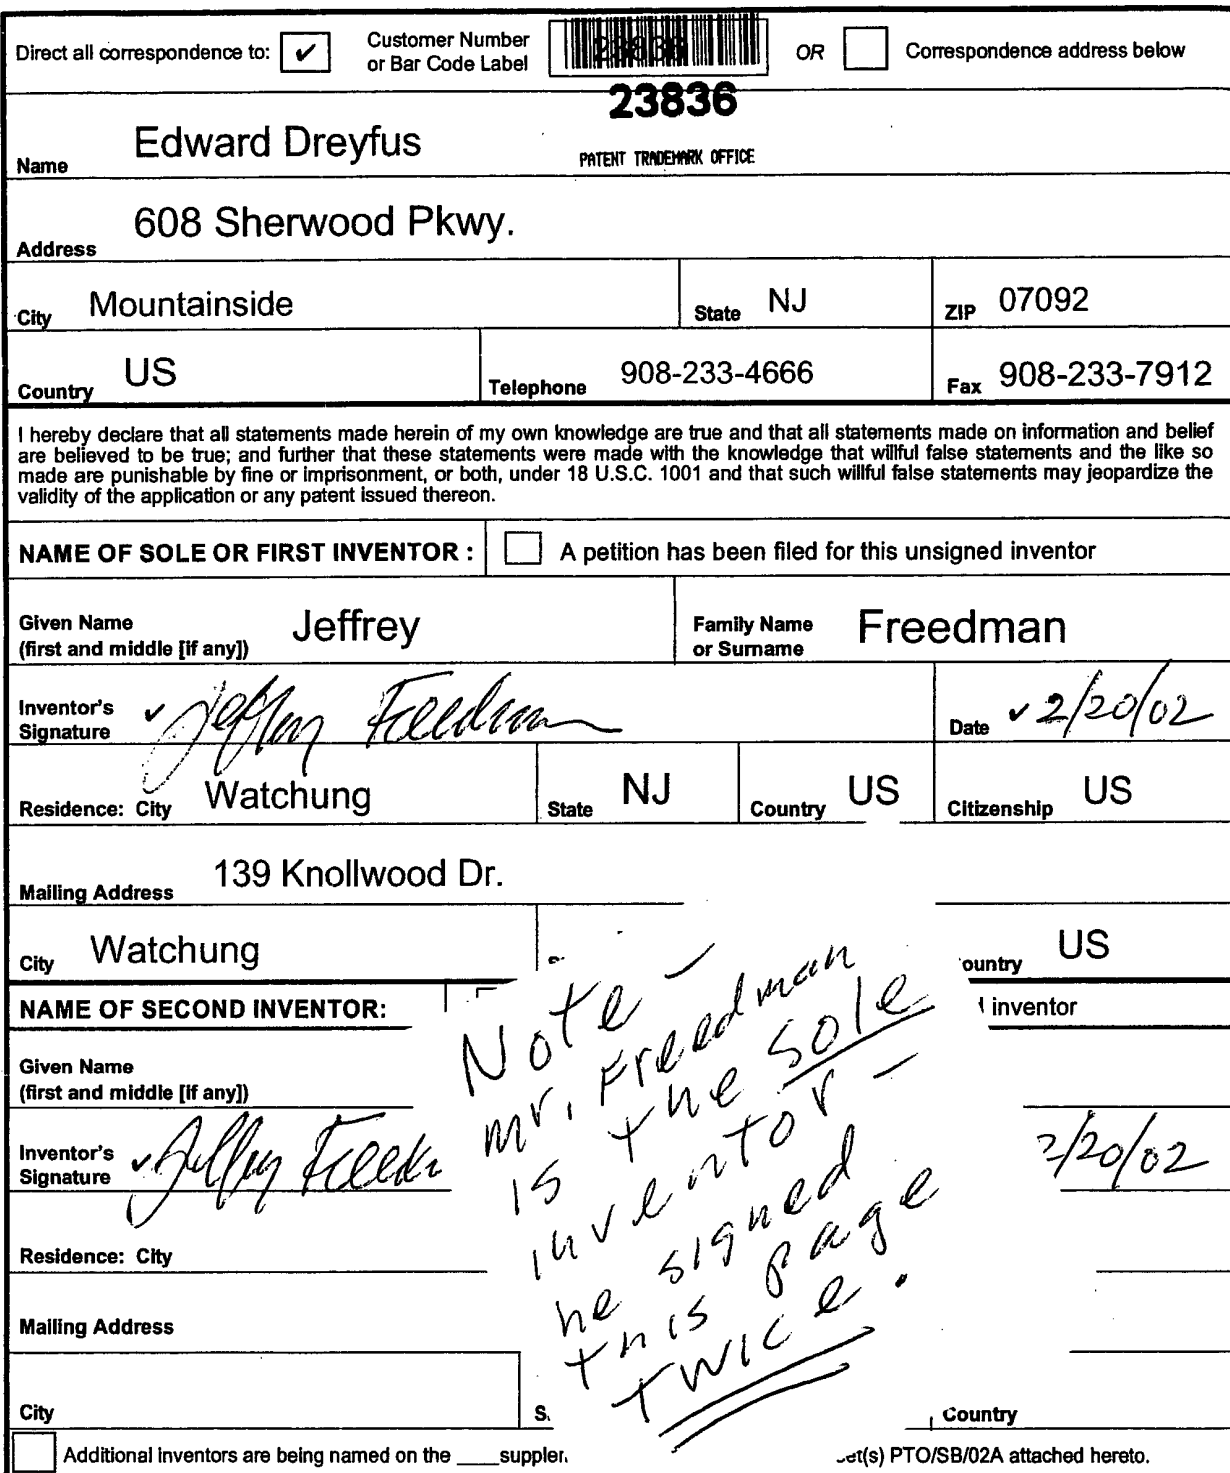 Direct all correspondence to: ✔ Customer Number or Bar Code Label 23836 OR Correspondence address below
23836
PATENT TRADEMARK OFFICE
Name Edward Dreyfus
Address 608 Sherwood Pkwy.
City Mountainside State NJ ZIP 07092
Country US Telephone 908-233-4666 Fax 908-233-7912
I hereby declare that all statements made herein of my own knowledge are true and that all statements made on information and belief
are believed to be true; and further that these statements were made with the knowledge that willful false statements and the like so
made are punishable by fine or imprisonment, or both, under 18 U.S.C. 1001 and that such willful false statements may jeopardize the
validity of the application or any patent issued thereon.
NAME OF SOLE OR FIRST INVENTOR : A petition has been filed for this unsigned inventor
Given Name
(first and middle [if any]) Jeffrey Family Name
or Surname Freedman
Inventor's
Signature ✔ Jeffrey Freedman Date ✔ 2/20/02
Residence: City Watchung State NJ Country US Citizenship US
Mailing Address 139 Knollwood Dr.
City Watchung ountry US
NAME OF SECOND INVENTOR: inventor
Given Name
(first and middle [if any])
Inventor's
Signature ✔ Jeffrey Freed 2/20/02
Residence: City
Mailing Address
City S. Country
Additional inventors are being named on the ____suppler. et(s) PTO/SB/02A attached hereto.
Note -
Mr. Freedman
is the sole
inventor -
he signed
this page
twice.